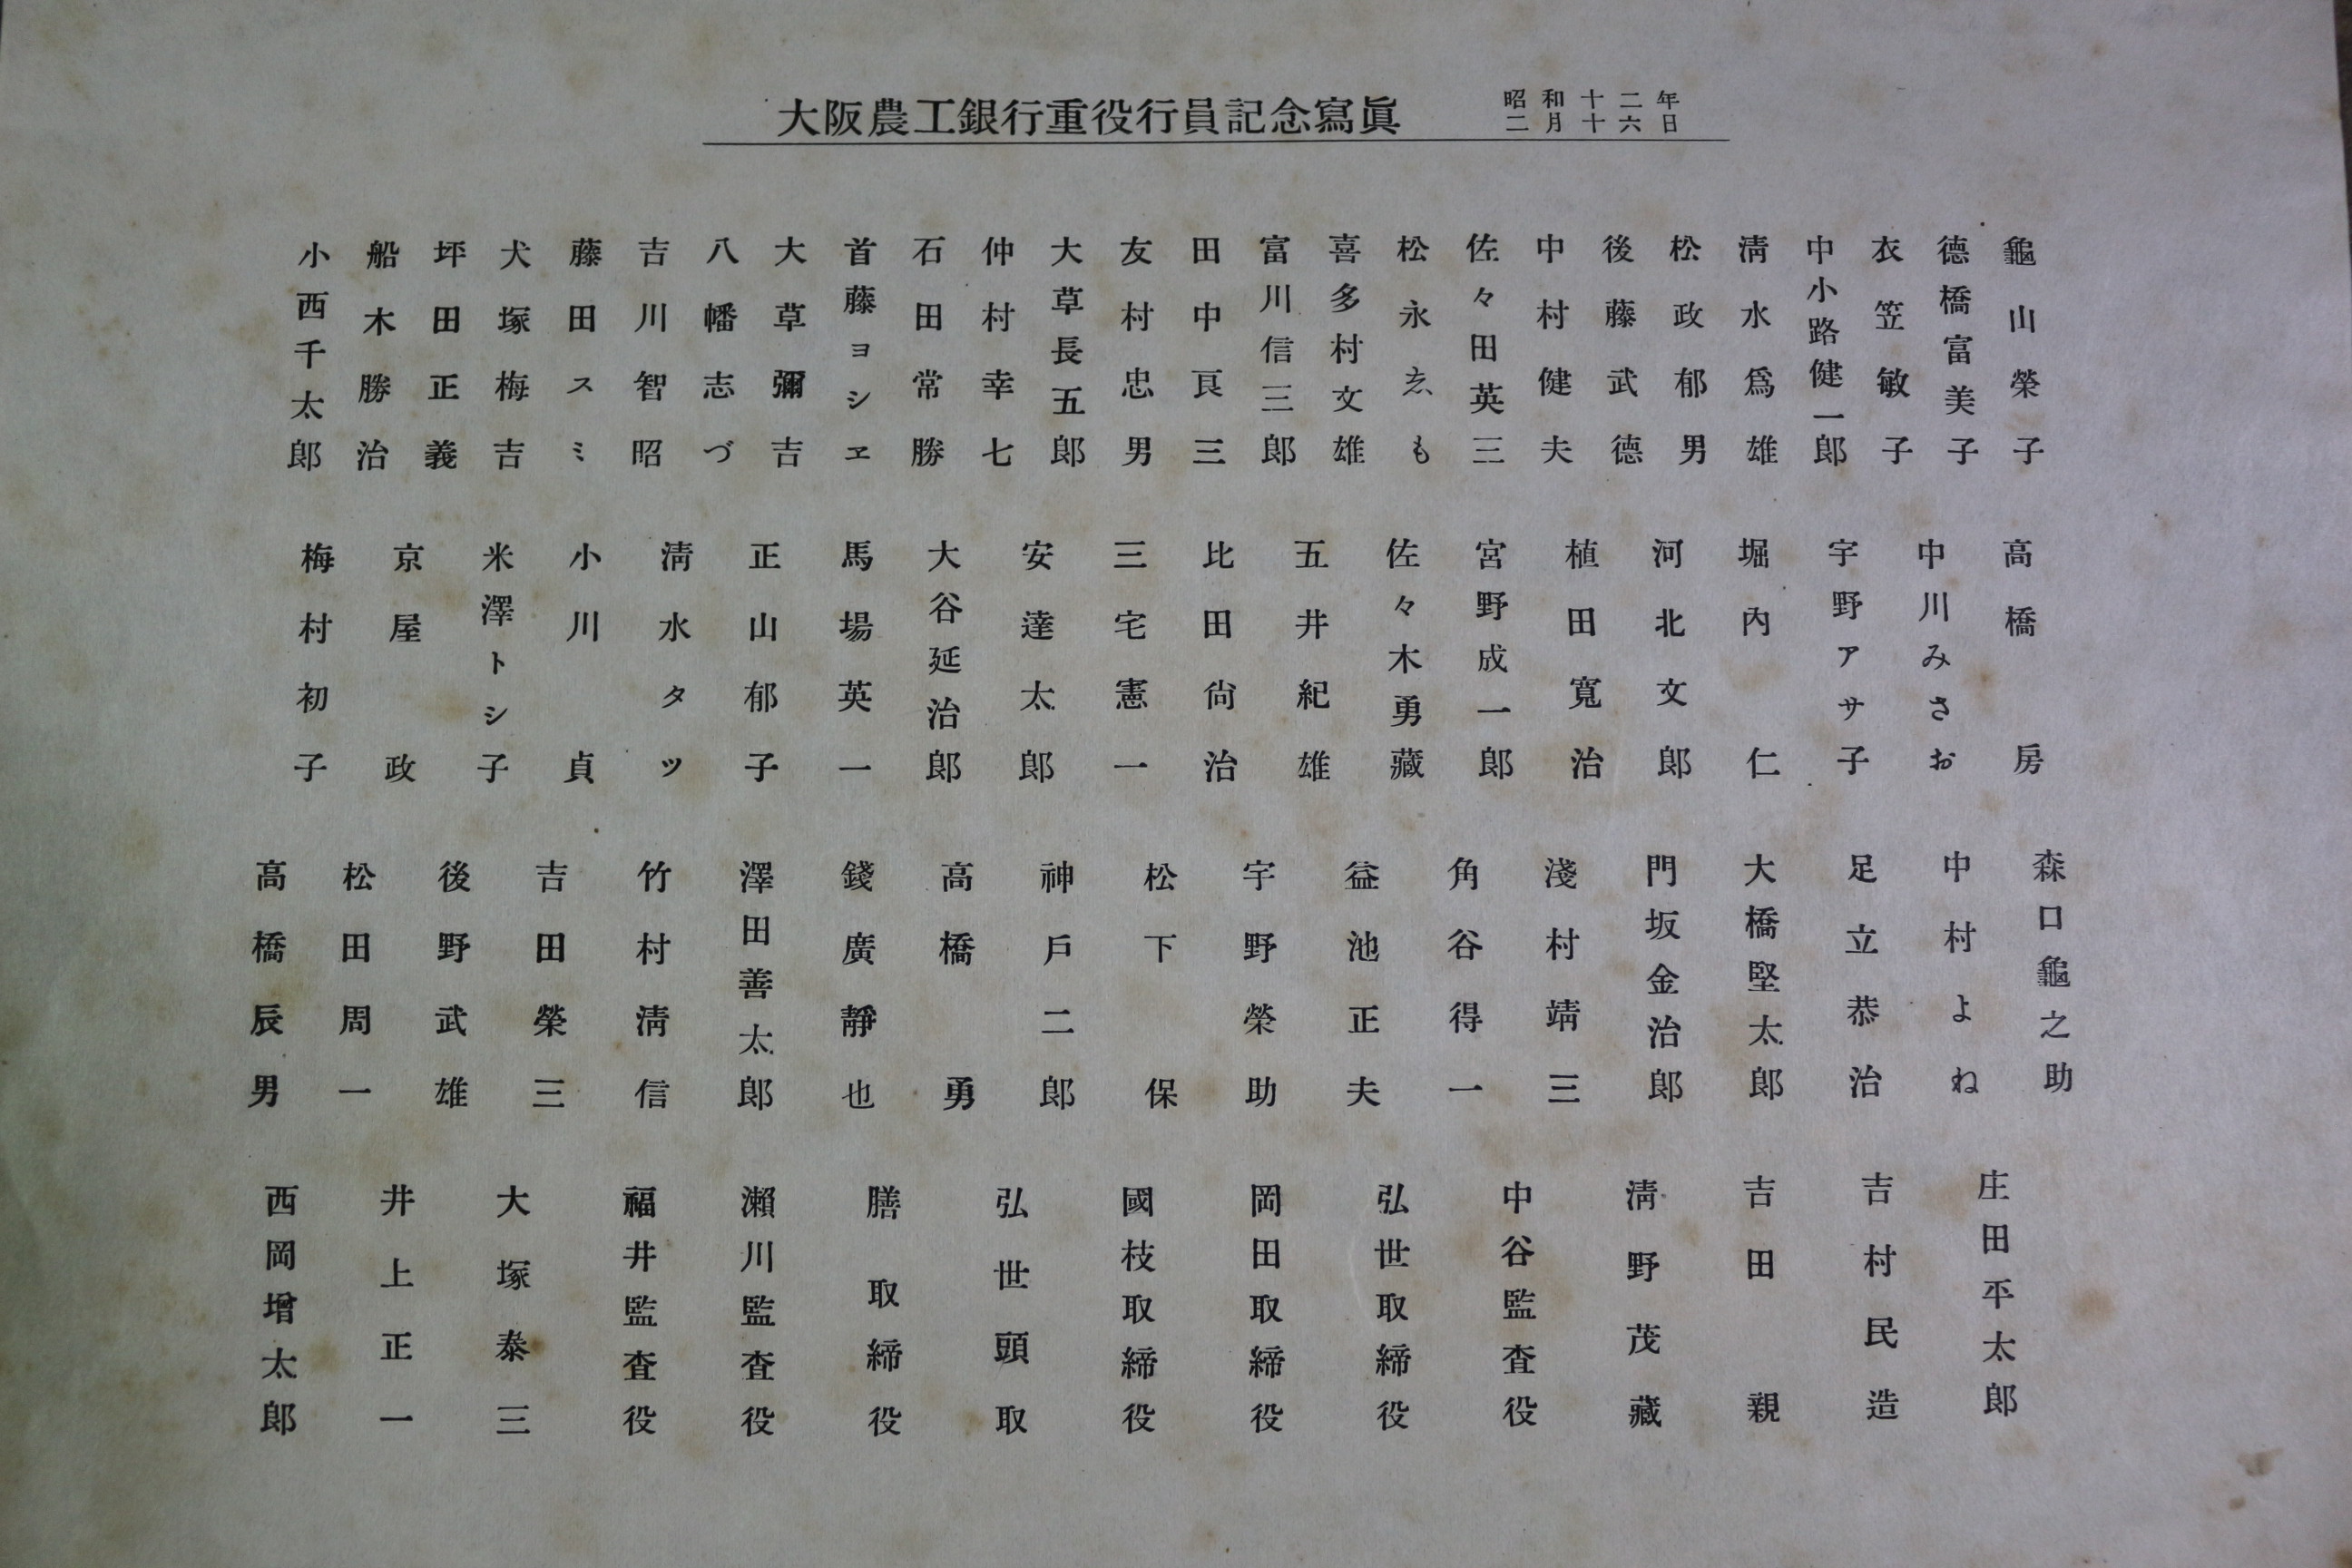 大阪農工銀行重役行員記念寫眞
昭和十二年
二月十六日
龜山榮子
德橋富美子
衣笠敏子
中小路健一郎
淸水爲雄
松政郁男
後藤武德
中村健夫
佐々田英三
松永ゑも
喜多村文雄
富川信三郎
田中良三
友村忠男
大草長五郎
仲村幸七
石田常勝
首藤ヨシヱ
大草彌吉
八幡志づ
吉川智昭
藤田スミ
犬塚梅吉
坪田正義
船木勝治
小西千太郎
高橋房
中川みさお
宇野アサ子
堀內仁
河北文郎
植田寬治
宮野成一郎
佐々木勇藏
五井紀雄
比田尙治
三宅憲一
安達太郎
大谷延治郎
馬場英一
正山郁子
淸水タツ
小川貞
米澤トシ子
京屋政
梅村初子
森口龜之助
中村よね
足立恭治
大橋堅太郎
門坂金治郎
淺村靖三
角谷得一
益池正夫
宇野榮助
松下保
神戶二郎
高橋勇
錢廣靜也
澤田善太郎
竹村淸信
吉田榮三
後野武雄
松田周一
高橋辰男
庄田平太郎
吉村民造
吉田親
淸野茂藏
中谷監査役
弘世取締役
岡田取締役
國枝取締役
弘世頭取
膳取締役
瀨川監査役
福井監査役
大塚泰三
井上正一
西岡增太郎